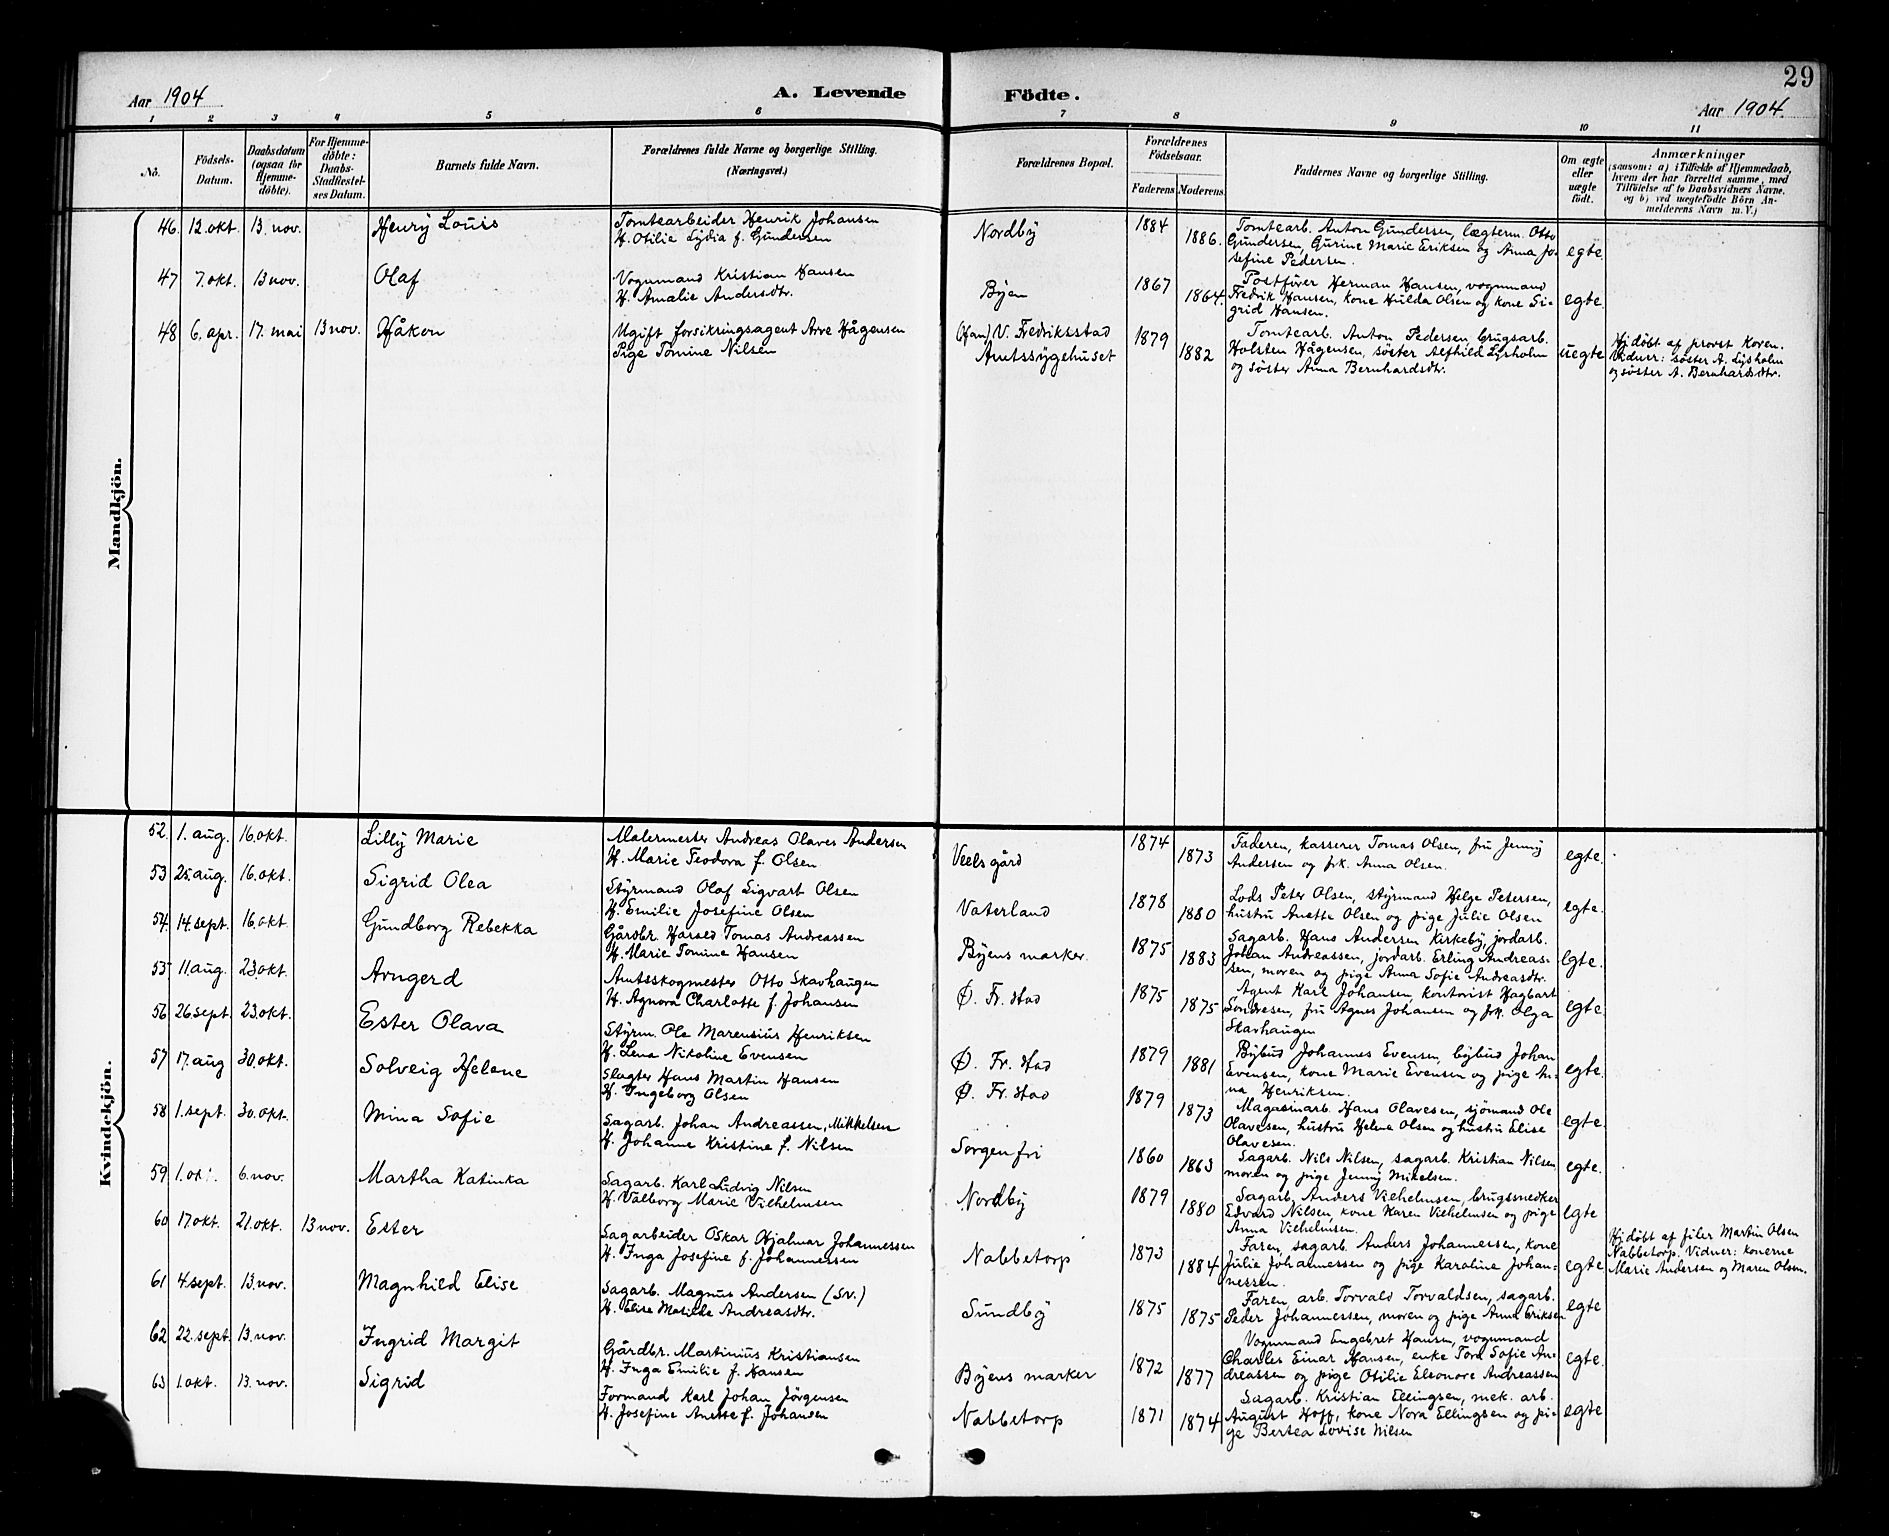 29
Aar 1904
A. Levende
Födte.
Aar 1904.
1 2 3 4 5 6 7 8 9 10 11
No.
Födsels-
Datum.
Daabsdatum
(ogsaa for
Hjemme-
döbte).
For Hjemme-
döbte:
Daabs-
Stadfæstel-
ses Datum.
Barnets fulde Navn.
Forældrenes fulde Navne og borgerlige Stilling.
(Næringsvei.)
Forældrenes Bopæl.
Forældrenes
Födselsaar.
Faderens Moderens
Faddernes Navne og borgerlige Stilling.
Om ægte
eller
uægte
födt.
Anmærkninger
(saasom: a) i Tilfælde af Hjemmedaab,
hvem der har forrettet samme, med
Tilföielse af to Daabsvidners Navne.
og b) ved uægtefödte Börn An-
melderens Navn m. V.)
Mandkjön.
46. 12. okt. 13. nov. Henry Louis
Tomtearbeider Henrik Johansen
H. Otilie Lydia f. Gundersen
Nordby
1884
1886.
Tomtearb. Anton Gundersen, lægterm. Otto
Gundersen, Gurine Marie Eriksen og Anna Jo-
sefine Pedersen.
egte.
47 7. okt. 13 nov. Olaf
Vognmand Kristian Hansen
H. Amalie Andersdtr.
Byen
1867
1864.
Postfører Herman Hansen, vognmand
Fredrik Hansen, kone Hulda Olsen og kone Si-
grid Hansen.
egte.
48 6. apr. 17. mai 13 nov. Håkon
Ugift forsikringsagent Arve Hågensen
Pige Tomine Nilsen
(Han) V. Fredriksstad
Amtssygehuset
1879
1882
Tomtearb. Anton Pedersen, brugsarb.
Holsten Hågensen, søster Alfhild Lysholm
og søster Anna Bernhardsdtr.
uegte
Hjdøbt af provst Koren.
Vidner: søster A. Lysholm
og søster A. Bernhardsdtr.
Kvindekjön.
52. 1. aug. 16. okt. Lilly Marie
Malermester Andreas Olaves Andersen
H. Marie Teodora f. Olsen
Veelsgård
1874
1873
Faderen, kasserer Tomas Olsen, fru Jenny
Andersen og frk. Anna Olsen.
egte.
53 25. aug. 16. okt. Sigrid Olea
Styrmand Olaf Sigvart Olsen
H. Emilie Josefine Olsen
Vaterland
1878
1880
Lods Peter Olsen, styrmand Helge Petersen,
hustru Anette Olsen og pige Julie Olsen
egte.
54. 14. sept. 16. okt Gundborg Rebekka
Gårdbr. Tomas Andreassen
H. Marie Tomine Hansen
Byens marker.
1875
1883
Sagarb. Hans Andersen Kirkeby, jordarb.
Johan Andreassen, jordarb. Erling Andreas-
sen, moren og pige Anna Sofie Andreasdtr.
egte.
55 11 aug. 23. okt. Arngerd
Amtsskogmester Otto Skavhaugen
H. Agnora Charlotte f. Johansen
Ø. Fr. stad
1875
1875
Agent Karl Johansen, kontorist Hagbart
fru Agnes Johansen og frk. Olga
Skavhaugen
egte.
56 26 sept. 23. okt. Ester Olava
Styrm. Ole Marensius Henriksen
H. Lena Nikoline Evensen
Ø. Fr. stad
1879
1881
Bybud Johannes Evensen, bybud Johan
Evensen, kone Marie Evensen og pige An-
na Henriksen.
egte.
57 17. aug 30. okt. Solveig Helene
Slagter Hans Martin Hansen
H. Ingeborg Olsen
Ø. Fr. stad
1879
1873
Magasinarb. Hans Olavesen, sjömand Ole
Olavesen, hustru Helene Olsen og hustru Elise
Olavesen.
egte.
58 1. sept. 30. okt. Mina Sofie
Sagarb. Johan Andreassen, Mikkelsen
H. Johanne Kristine f. Nilsen
Sorgenfri
1860
1863
Sagarb. Nils Nilsen, sagarb. Kristian Nilsen
moren og pige Jenny Mikelsen.
egte.
59 1. ok. 6. nov. Martha Katinka
Sagarb. Karl Ludvig Nilsen
H. Valborg Marie Vilhelmsen
Nordby
1879
1880
Sagarb. Anders Vilhelmsen, brugssnedker
Edvard Nilsen kone Karen Vilhelmsen og pige
Anna Vilhelmsen.
egte
60 17 okt. 21. okt. 13 nov. Ester
Sagarbeider Oskar Hjalmar Johannessen
H. Inga Josefine f. Johannessen
Nabbetorp
1873
1884
Faren, sagarb. Anders Johannessen, kone
Julie Johannessen og pige Karoline Johan-
nessen.
egte
Hjdøbt af filer Martin Olsen
Nabbetorp. Vidner: konerne
Marie Andersen og Maren Olsen.
61 4. sept. 13. nov. Magnhild Elise
Sagarb. Magnus Andersen (Sv.)
H. Elise Matilde Andreasdtr.
Sundby
1875
1875
Faren, arb. Torvald Torvaldsen, sagarb.
Peder Johannessen, moren og pige Anna Eriksen
egte
62 22. sept. 13. nov. Ingrid Margit
Gårdbr. Martinius Kristiansen
H. Inga Emilie f. Hansen
Byens marker
1872
1877
Vognmand Engebret Hansen, vognmand
Charles Einar Hansen, enke Tora Sofie An-
dreassen og pige Otilie Eleonore Andreassen
egte.
63 1. okt. 13. nov. Sigrid
Formand Karl Johan Jörgensen
H. Josefine Anette f. Johansen
Nabbetorp
1871
1874
Sagarb. Kristian Ellingsen, mek. arb.
August Hoff, kone Nora Ellingsen og pi-
ge Bertea Lovise Nilsen
egte